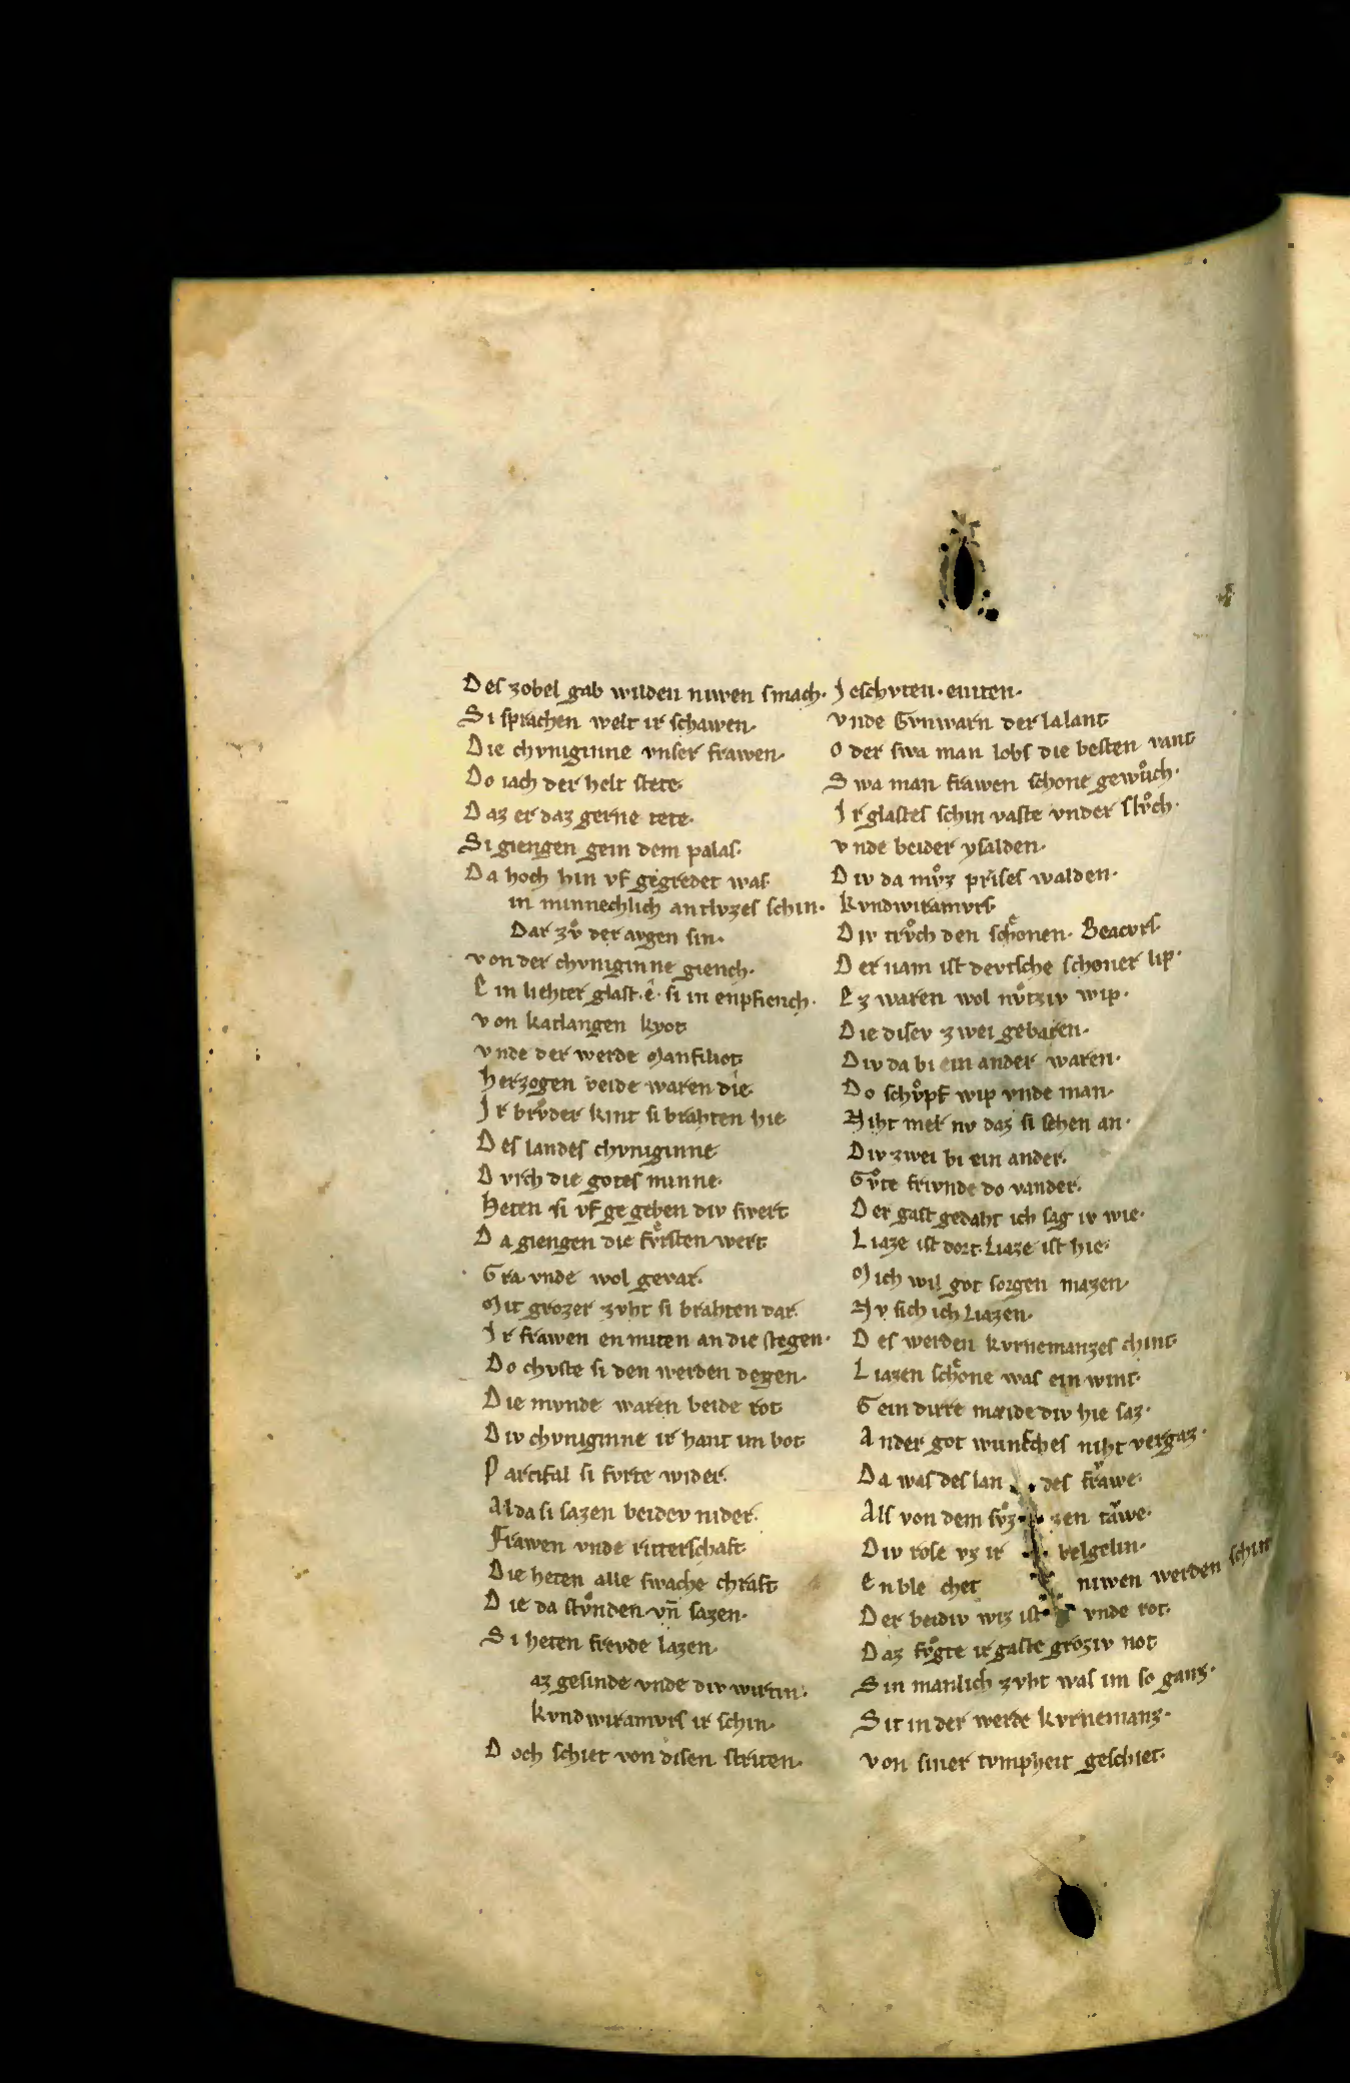 Des zobel gab wilden niwen smach·
Si sprachen welt ir schawen·
Die chvniginne vnser frawen·
Do iach der helt stete·
Daz er daz gerne tete·
Si giengen gein dem palas·
Da hoch hin vf gegredet was·
in minnechlich antlvzes schin·
Dar zvͦ der avgen sin·
von der chvniginne giench·
Ein liehter glast·ê·si in enpfiench·
von katlangen kyot
vnde der werde Manfiliot
herzogen beide waren die·
Ir brvͦder kint si brahten hie
Des landes chvniginne
Dvrch die gotes minne·
Heten si vf ge geben div swert
Da giengen die fvͤrsten wert
Gra vnde wol gevar·
Mit grozer zvht si brahten dar·
Ir frawen en miten an die stegen·
Do chvste si den werden degen·
Die mvnde waren beide rot
Div chvniginne ir hant im bot
Parcifal si fvrte wider·
Alda si sazen beidev nider·
Frawen vnde ritterschaft
Die heten alle swache chraft
Die da stvͦnden vñ sazen·
Si heten frevde lazen·
az gesinde vnde div wirtin·
kvndwiramvrs ir schin·
Doch schiet von disen striten·
Ieschvten·eniten·
vnde Gvnwarn der lalant
Oder swa man lobs die besten vant
Swa man frawen schone gewuͦch·
Ir glastes schin vaste vnder slvͦch·
vnde beider ysalden·
Div da mvͦz prises walden·
kvndwiramvrs
Div trvͦch den schoͤnen· Beacvrs·
Der nam ist devtsche schoner lip·
Ez waren wol nvͦtziv wip·
Die disev zwei gebaren·
Div da bi ein ander waren·
Do schvͦpf wip vnde man·
Niht mer nv daz si sehen an·
Div zwei bi ein ander·
Gvͦte frivnde do vander·
Der gast gedaht ich sag iv wie·
Liaze ist dort·Liaze ist hie·
Mich wil got sorgen mazen·
Nv sich ich Liazen·
Des werden kvrnemanzes chint
Liazen schoͤne was ein wint·
Gein dirre meide div hie saz·
Ander got wunsches niht vergaz·
Da was des lan des frawe·
Als von dem svͦz zen tawe·
Div rose vz ir belgelin·
Enble chet niwen werden schin
Der beidiv wiz ist vnde rot·
Daz fvͦgte ir gaste groziv not
Sin manlich zvht was im so ganz·
Sit in der werde kvrnemanz·
von siner tvmpheit geschiet·